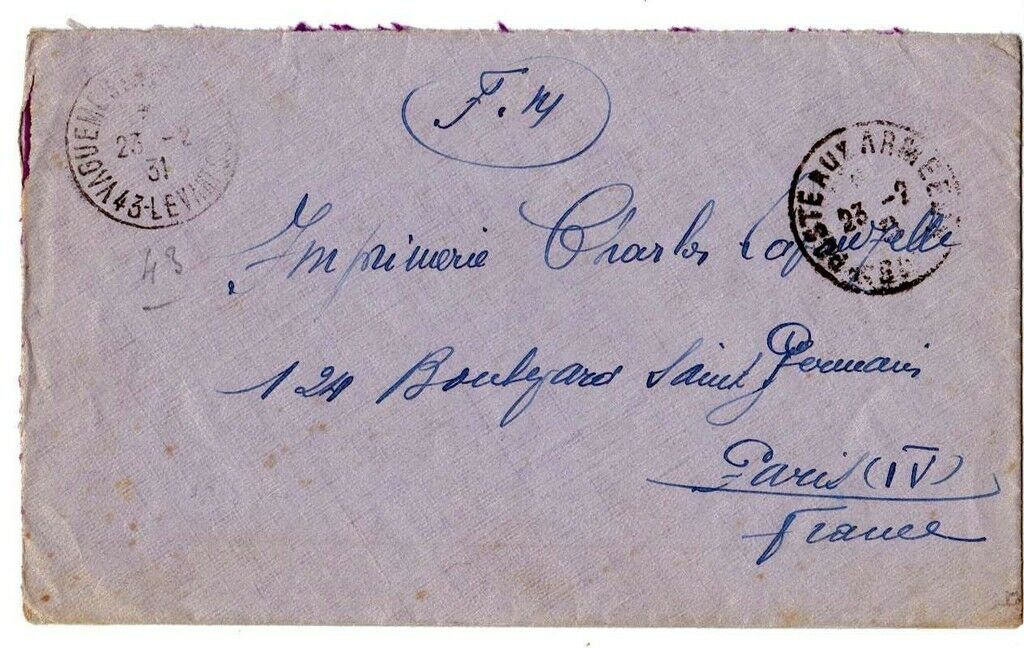 F. M
VAGUEMES
23 -2
31
43-LEVANT
POSTE AUX ARMEES
23 -2
43
Imprimerie Charles Lavauzelle
124 Boulevard Saint Germain
Paris (IV)
France